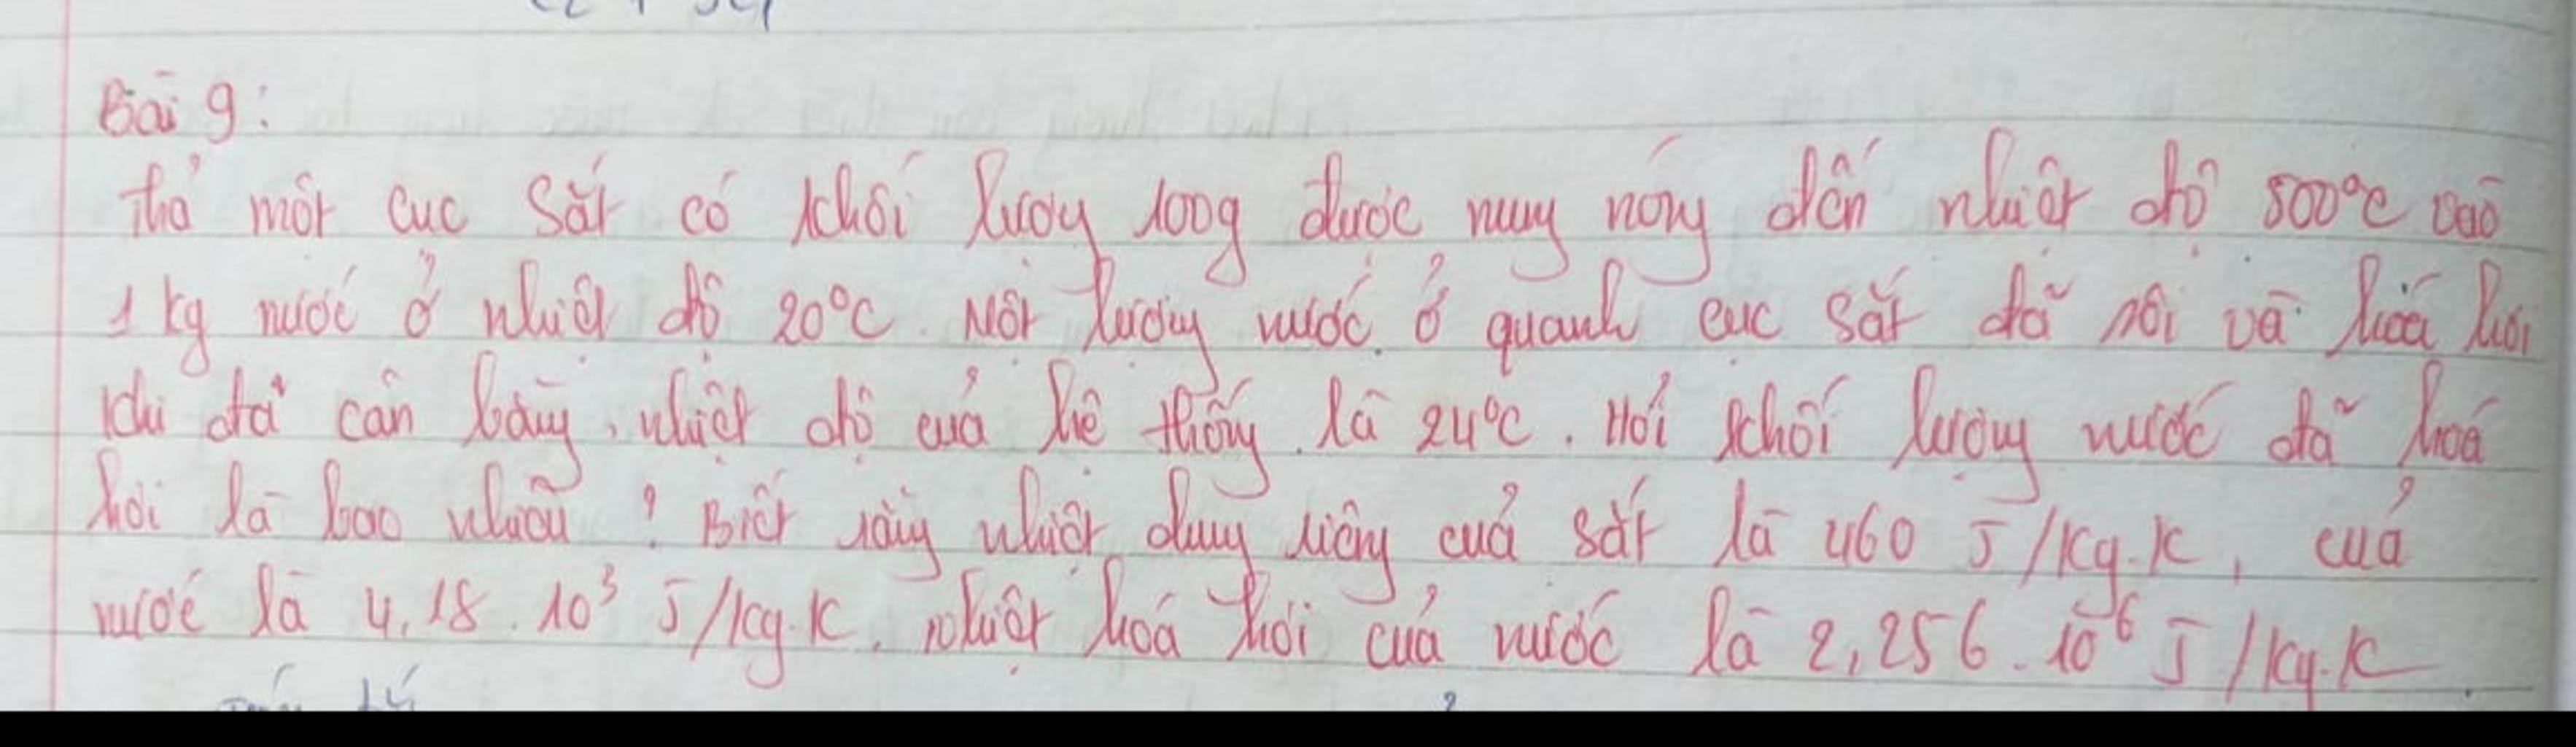 Bài 9:
Thả một cục sắt có khối lượng 100g được nung nóng đến nhiệt độ 500°C vào
1 kg nước ở nhiệt độ 20°C. Một lượng nước ở quanh cục sắt đã sôi và hoá hơi
khi đã cân bằng, nhiệt độ của hệ thống là 24°C. Hỏi khối lượng nước đã hoá
hơi là bao nhiêu? Biết rằng nhiệt dung riêng của sắt là 460 J/kg.K, của
nước là 4,18.10³ J/kg.K. nhiệt hoá hơi của nước là 2,256.10⁶ J/kg.K.